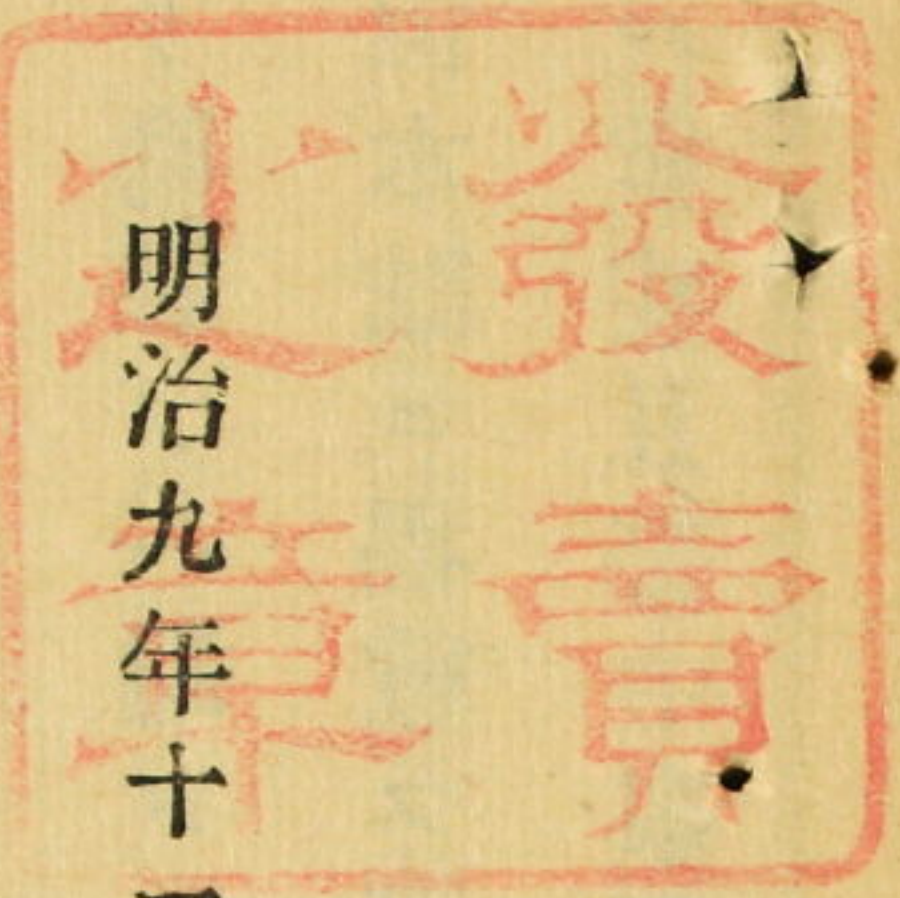 發賣
之章
明治九年十